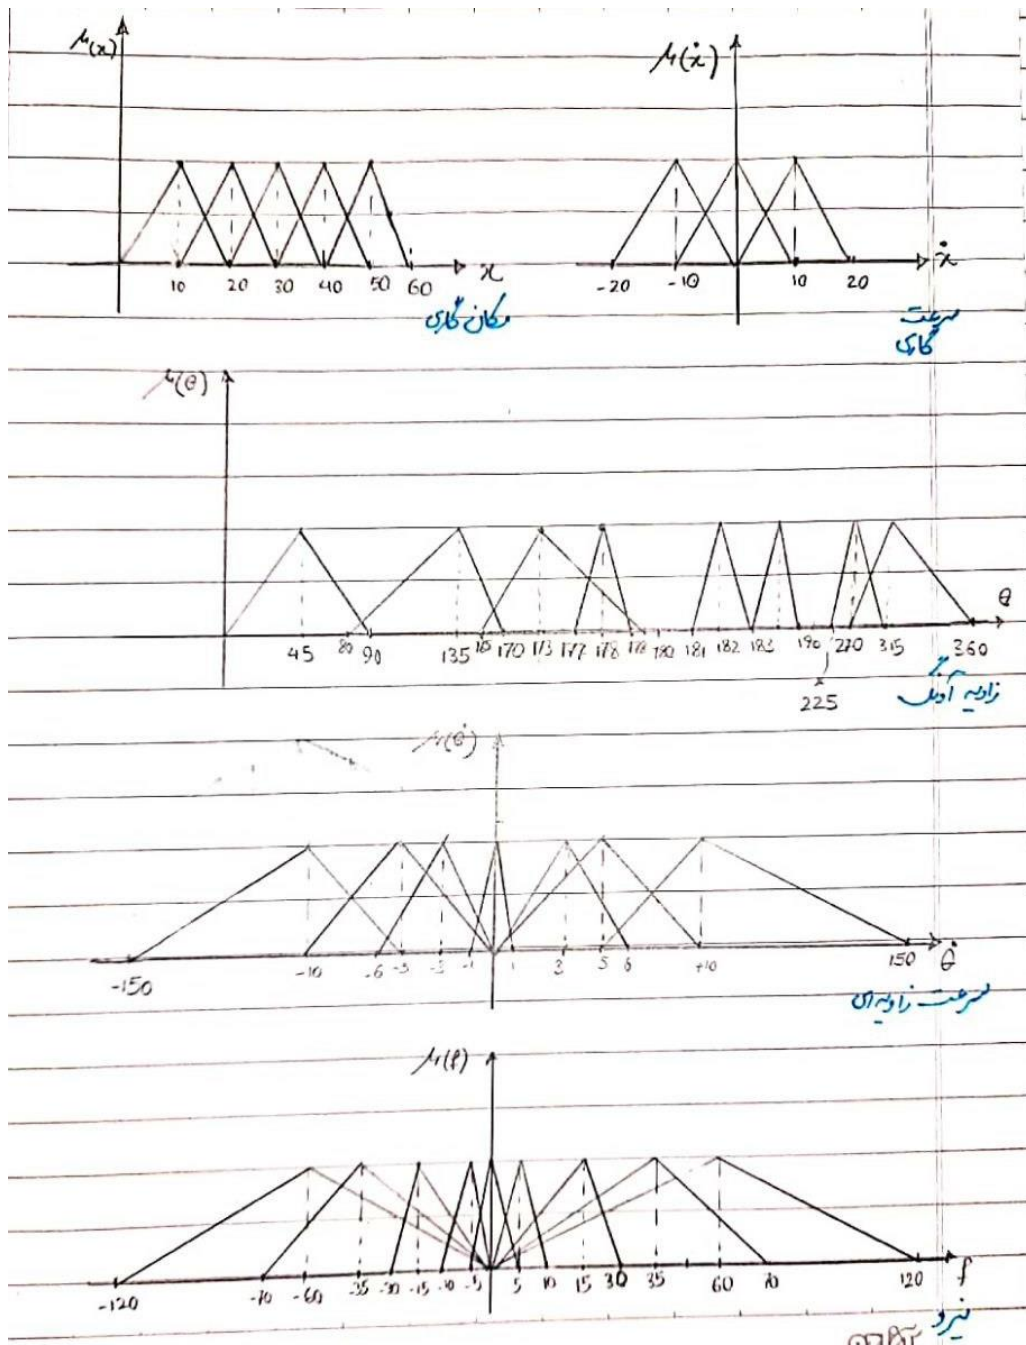 μ(x) μ(ẋ)
10 20 30 40 50 60 x
-20 -10 10 20 ẋ
مکان گاری
سرعت
گاری
μ(θ)
θ
45 80 90 135 165 170 173 177 178 179 180 181 182 183 190 270 315 360
225
زاویه آونگ
μ(θ̇)
-150 -10 -6 -5 -3 -1 1 3 5 6 +10 150 θ̇
سرعت زاویه‌ای
μ(f)
-120 -70 -60 -35 -30 -15 -10 -5 5 10 15 30 35 60 70 120 f
نیرو